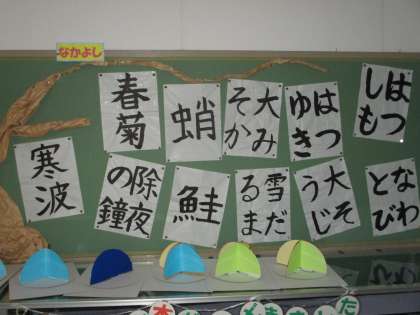 なかよし
はつ
しも
はつ
ゆき
大み
そか
蛸
春菊
寒波
なわ
とび
大そ
うじ
雪だ
るま
鮭
除夜
の鐘